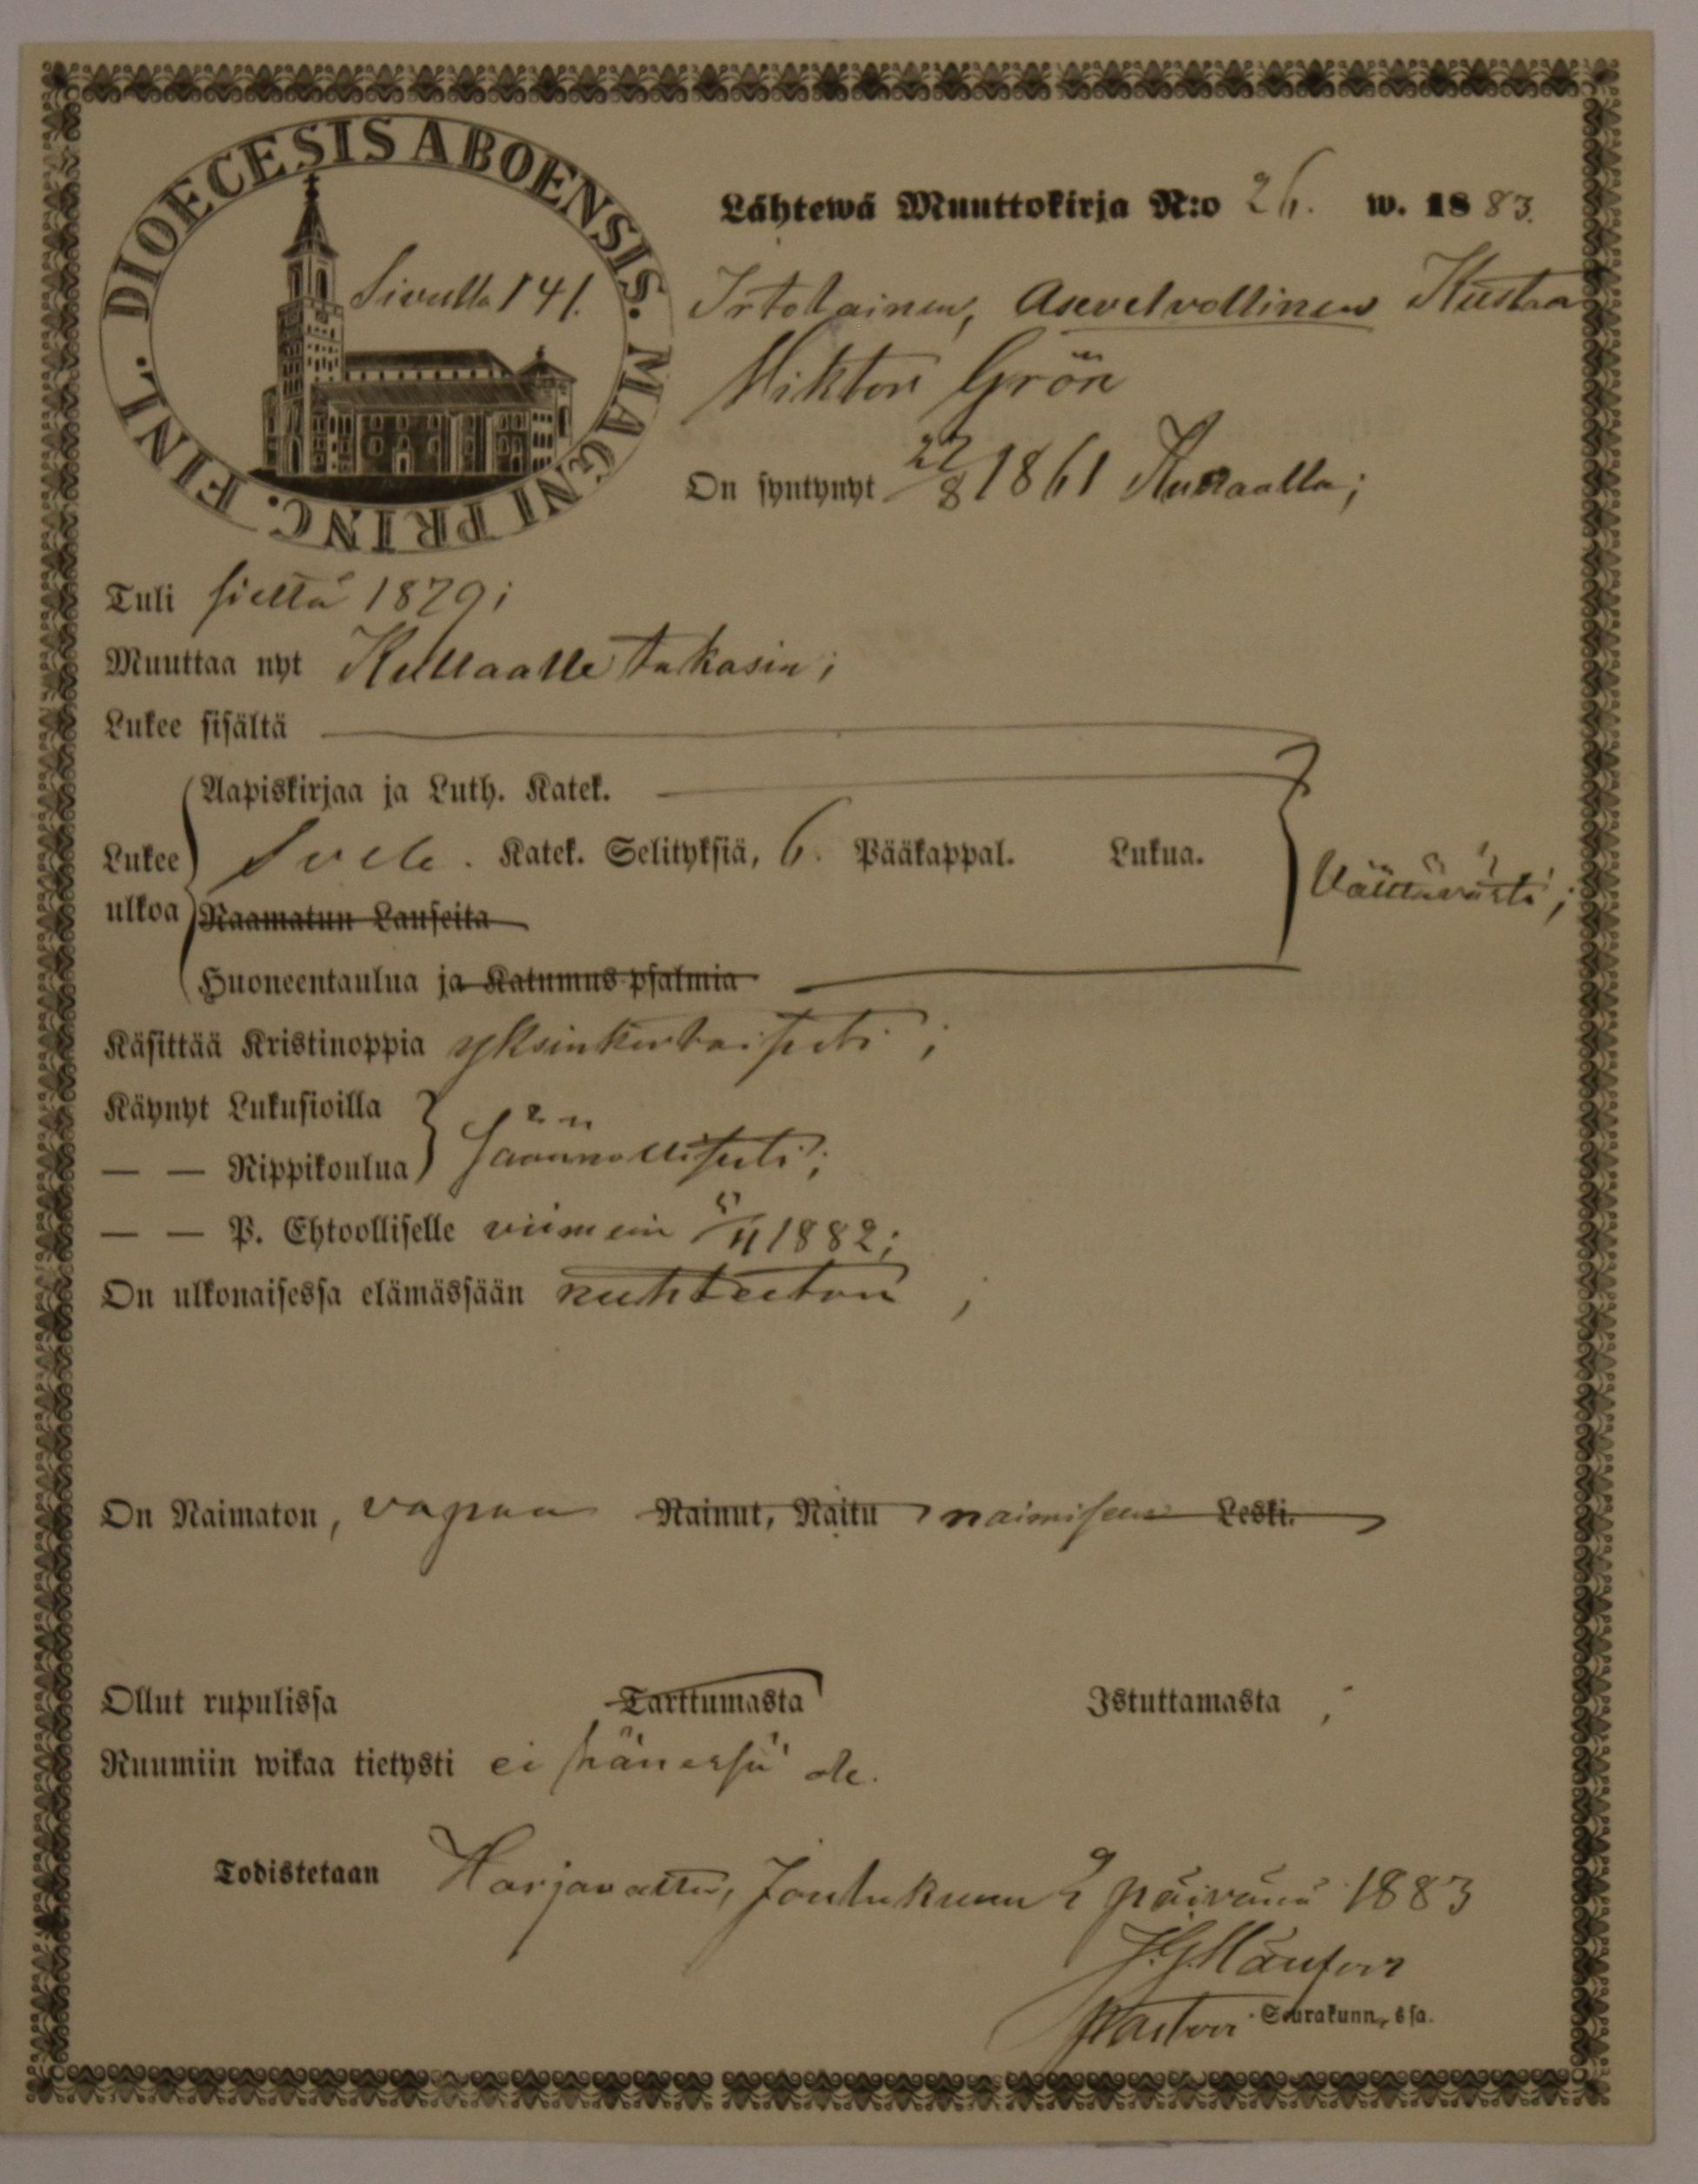 DIOECESIS ABOENSIS. MAGNI PRINC. FINL.
Sivulla 141.
Lähtewä Muuttokirja N:o 26. w. 1883.
Irtolainen, Asevelvollinen Kustaa
Wiktor Grön
On syntynyt 22/8 1861 Kullaalla;
Tuli sieltä 1879;
Muuttaa nyt Kullaalle takasin;
Lukee sisältä
Aapiskirjaa ja Luth. Katek.
Lukee ulkoa Katek. Selityksiä, 6. Pääkappal. Lukua. Välttävästi;
Raamatun Lauseita
Huoneentaulua ja Katumus-psalmia
Käsittää Kristinoppia yksinkertaisesti;
Käynyt Lukusioilla
— — Rippikoulua säännöllisesti;
— — P. Ehtoolliselle viimein 5/11 1882;
On ulkonaisessa elämässään nuhteeton;
On Naimaton, vapaa Nainut, Naitu naimiseen Leski.
Ollut rupulissa Tarttumasta Istuttamasta;
Ruumiin wikaa tietysti ei hänessä ole.
Todistetaan Harjavalta, Joulukuun 2 päivänä 1883
Pastor Seurakunn,ssa.